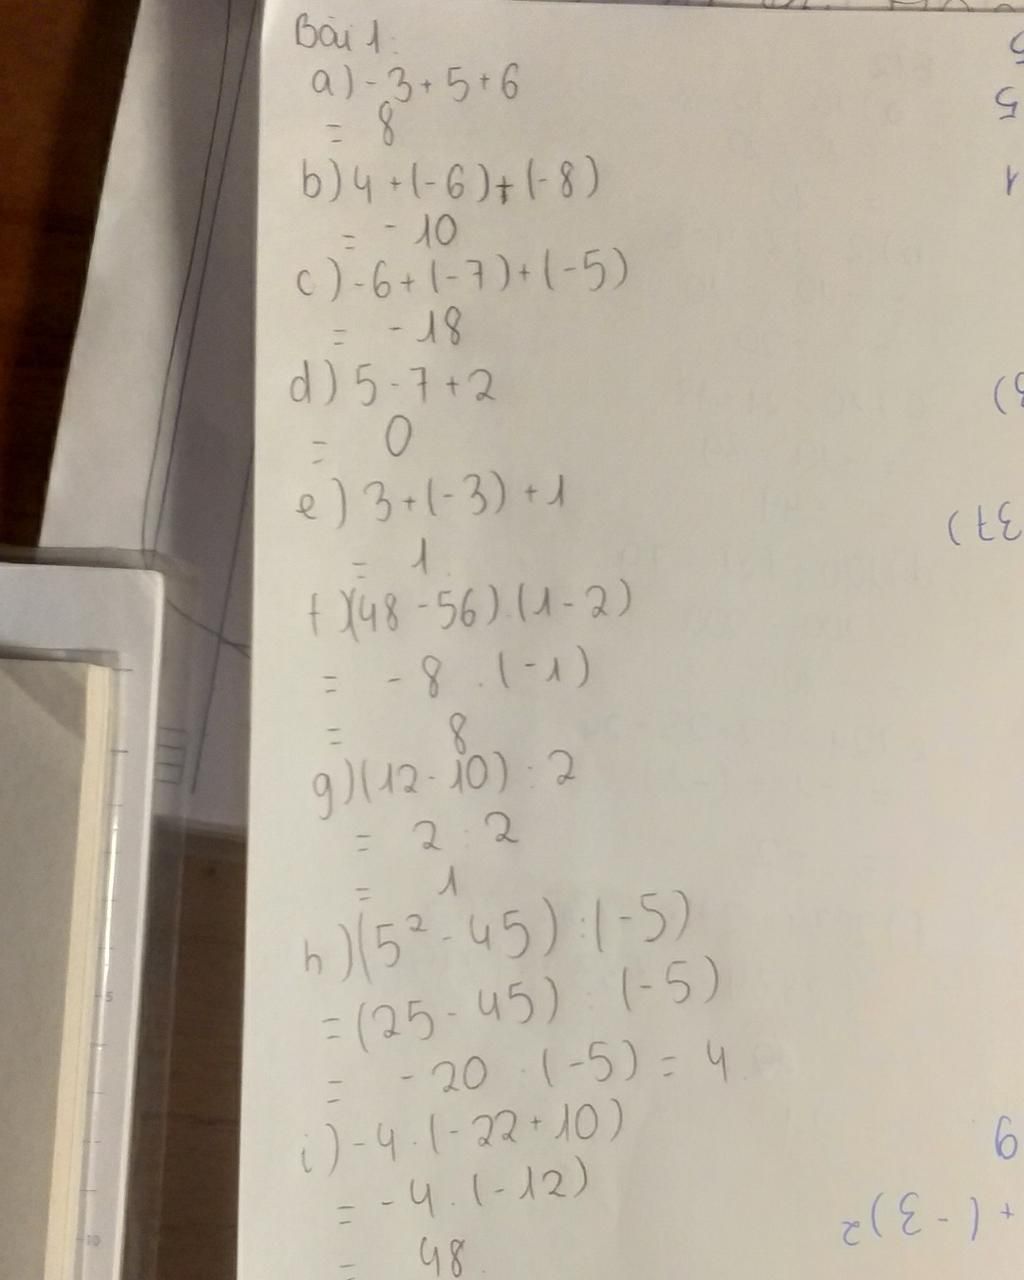 Bài 1:
a) -3 + 5 + 6
= 8
b) 4 + (-6) + (-8)
= -10
c) -6 + (-7) + (-5)
= -18
d) 5 - 7 + 2
= 0
e) 3 + (-3) + 1
= 1
f) (48 - 56) . (1 - 2)
= -8 . (-1)
= 8
g) (12 - 10) : 2
= 2 : 2
= 1
h) (5² - 45) : (-5)
= (25 - 45) : (-5)
= -20 : (-5) = 4
i) -4 . (-22 + 10)
= -4 . (-12)
= 48
5
1
37)
9
+ (-3)²